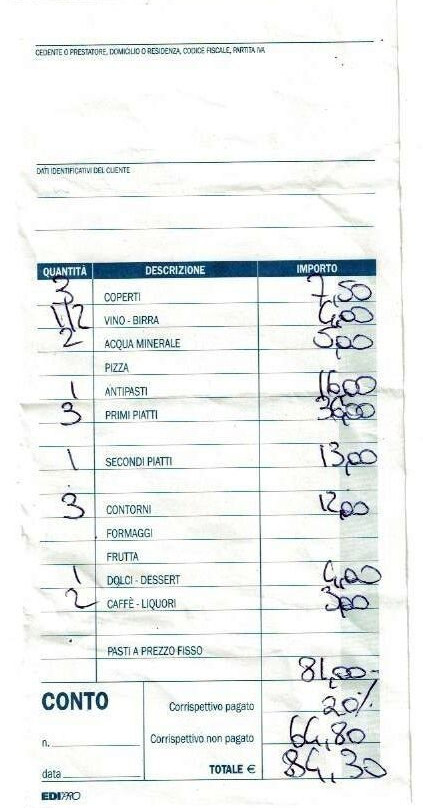 CEDENTE O PRESTATORE, DOMICILIO O RESIDENZA, CODICE FISCALE, PARTITA IVA
DATI IDENTIFICATIVI DEL CLIENTE
QUANTITÀ DESCRIZIONE IMPORTO
3 COPERTI 7,50
1/2 VINO - BIRRA 4,00
2 ACQUA MINERALE 5,00
PIZZA
1 ANTIPASTI 16,00
3 PRIMI PIATTI 36,00
1 SECONDI PIATTI 13,00
3 CONTORNI 12,00
FORMAGGI
FRUTTA
1 DOLCI - DESSERT 4,00
2 CAFFÈ - LIQUORI 3,00
PASTI A PREZZO FISSO
81,00-
CONTO Corrispettivo pagato 20%
n. Corrispettivo non pagato 64,80
data TOTALE € 84,30
EDIPRO